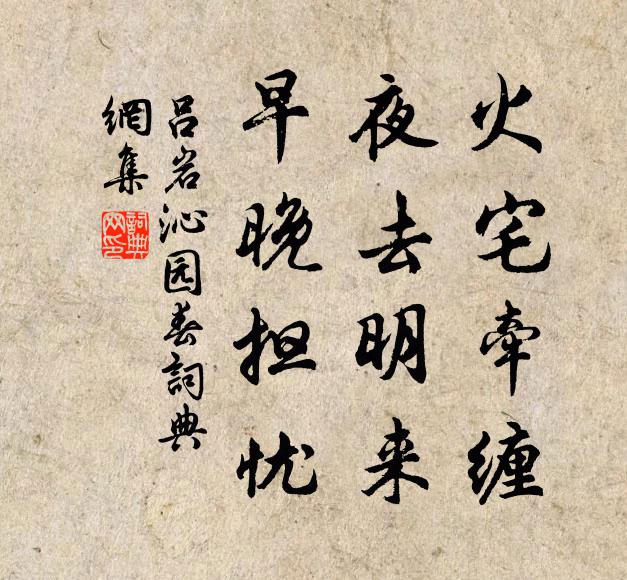 火宅牵缠
夜去明来
早晚担忧
吕岩沁园春詞典
網集
詞典网印